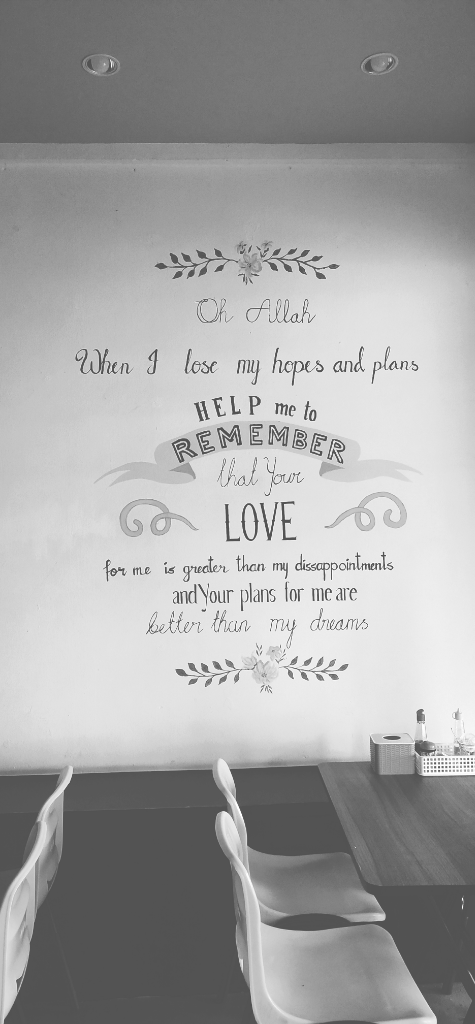 Oh Allah
When I lose my hopes and plans
HELP me to
REMEMBER
that Your
LOVE
for me is greater than my dissappointments
and Your plans for me are
better than my dreams